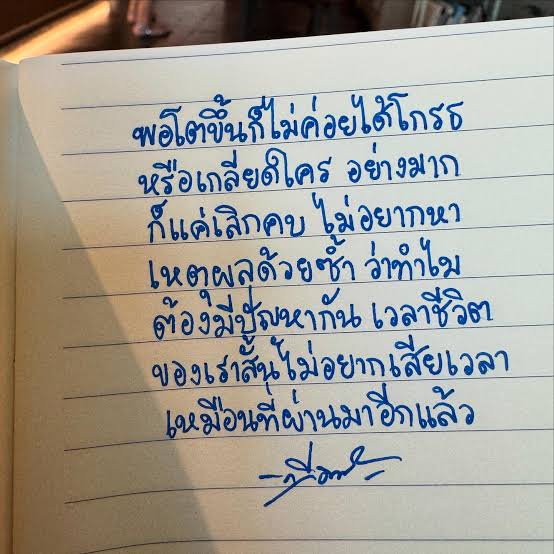 พอโตขึ้นก็ไม่ค่อยได้โกรธ
หรือเกลียดใคร อย่างมาก
ก็แค่เลิกคบ ไม่อยากหา
เหตุผลด้วยซ้ำ ว่าทำไม
ต้องมีปัญหากัน เวลาชีวิต
ของเราสั้น ไม่อยากเสียเวลา
เหมือนที่ผ่านมาอีกแล้ว